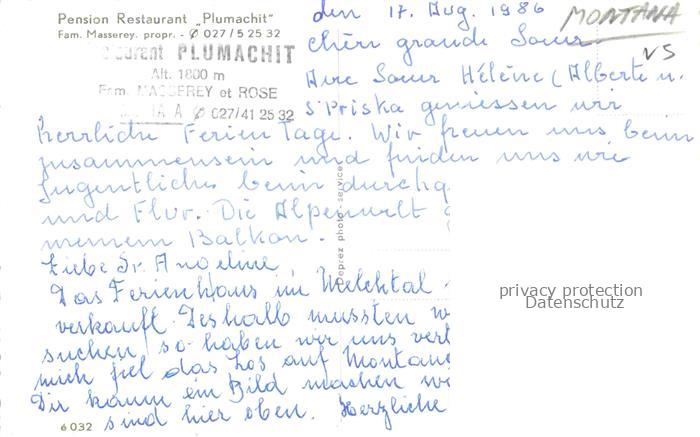 Pension Restaurant „Plumachit"
Fam. Masserey. propr. - ✆ 027/5 25 32
Restaurant PLUMACHIT
Alt. 1800 m
Fam. MASSEREY et ROSE
✆ 027/41 25 32
den 17. Aug. 1986
MONTANA
VS
chère grande Soeur
Avec Soeur Hélène (Alberte u.
S' Priska geniessen wir
herrliche Ferien Tage. Wir freuen uns beim
zusammensein und finden uns wie
Jugentliche beim durchq
und Flur. Die Alpenwelt
meinem Balkon.
Liebe Sr. Angeline,
Das Ferienhaus im Melchtal
verkauft. Deshalb mussten w
suchen, so haben wir uns vert
mich fiel das Los auf Montana
Dir kann ein Bild machen
sind hier oben. Herzliche
Deprez photo - service
privacy protection
Datenschutz
6032